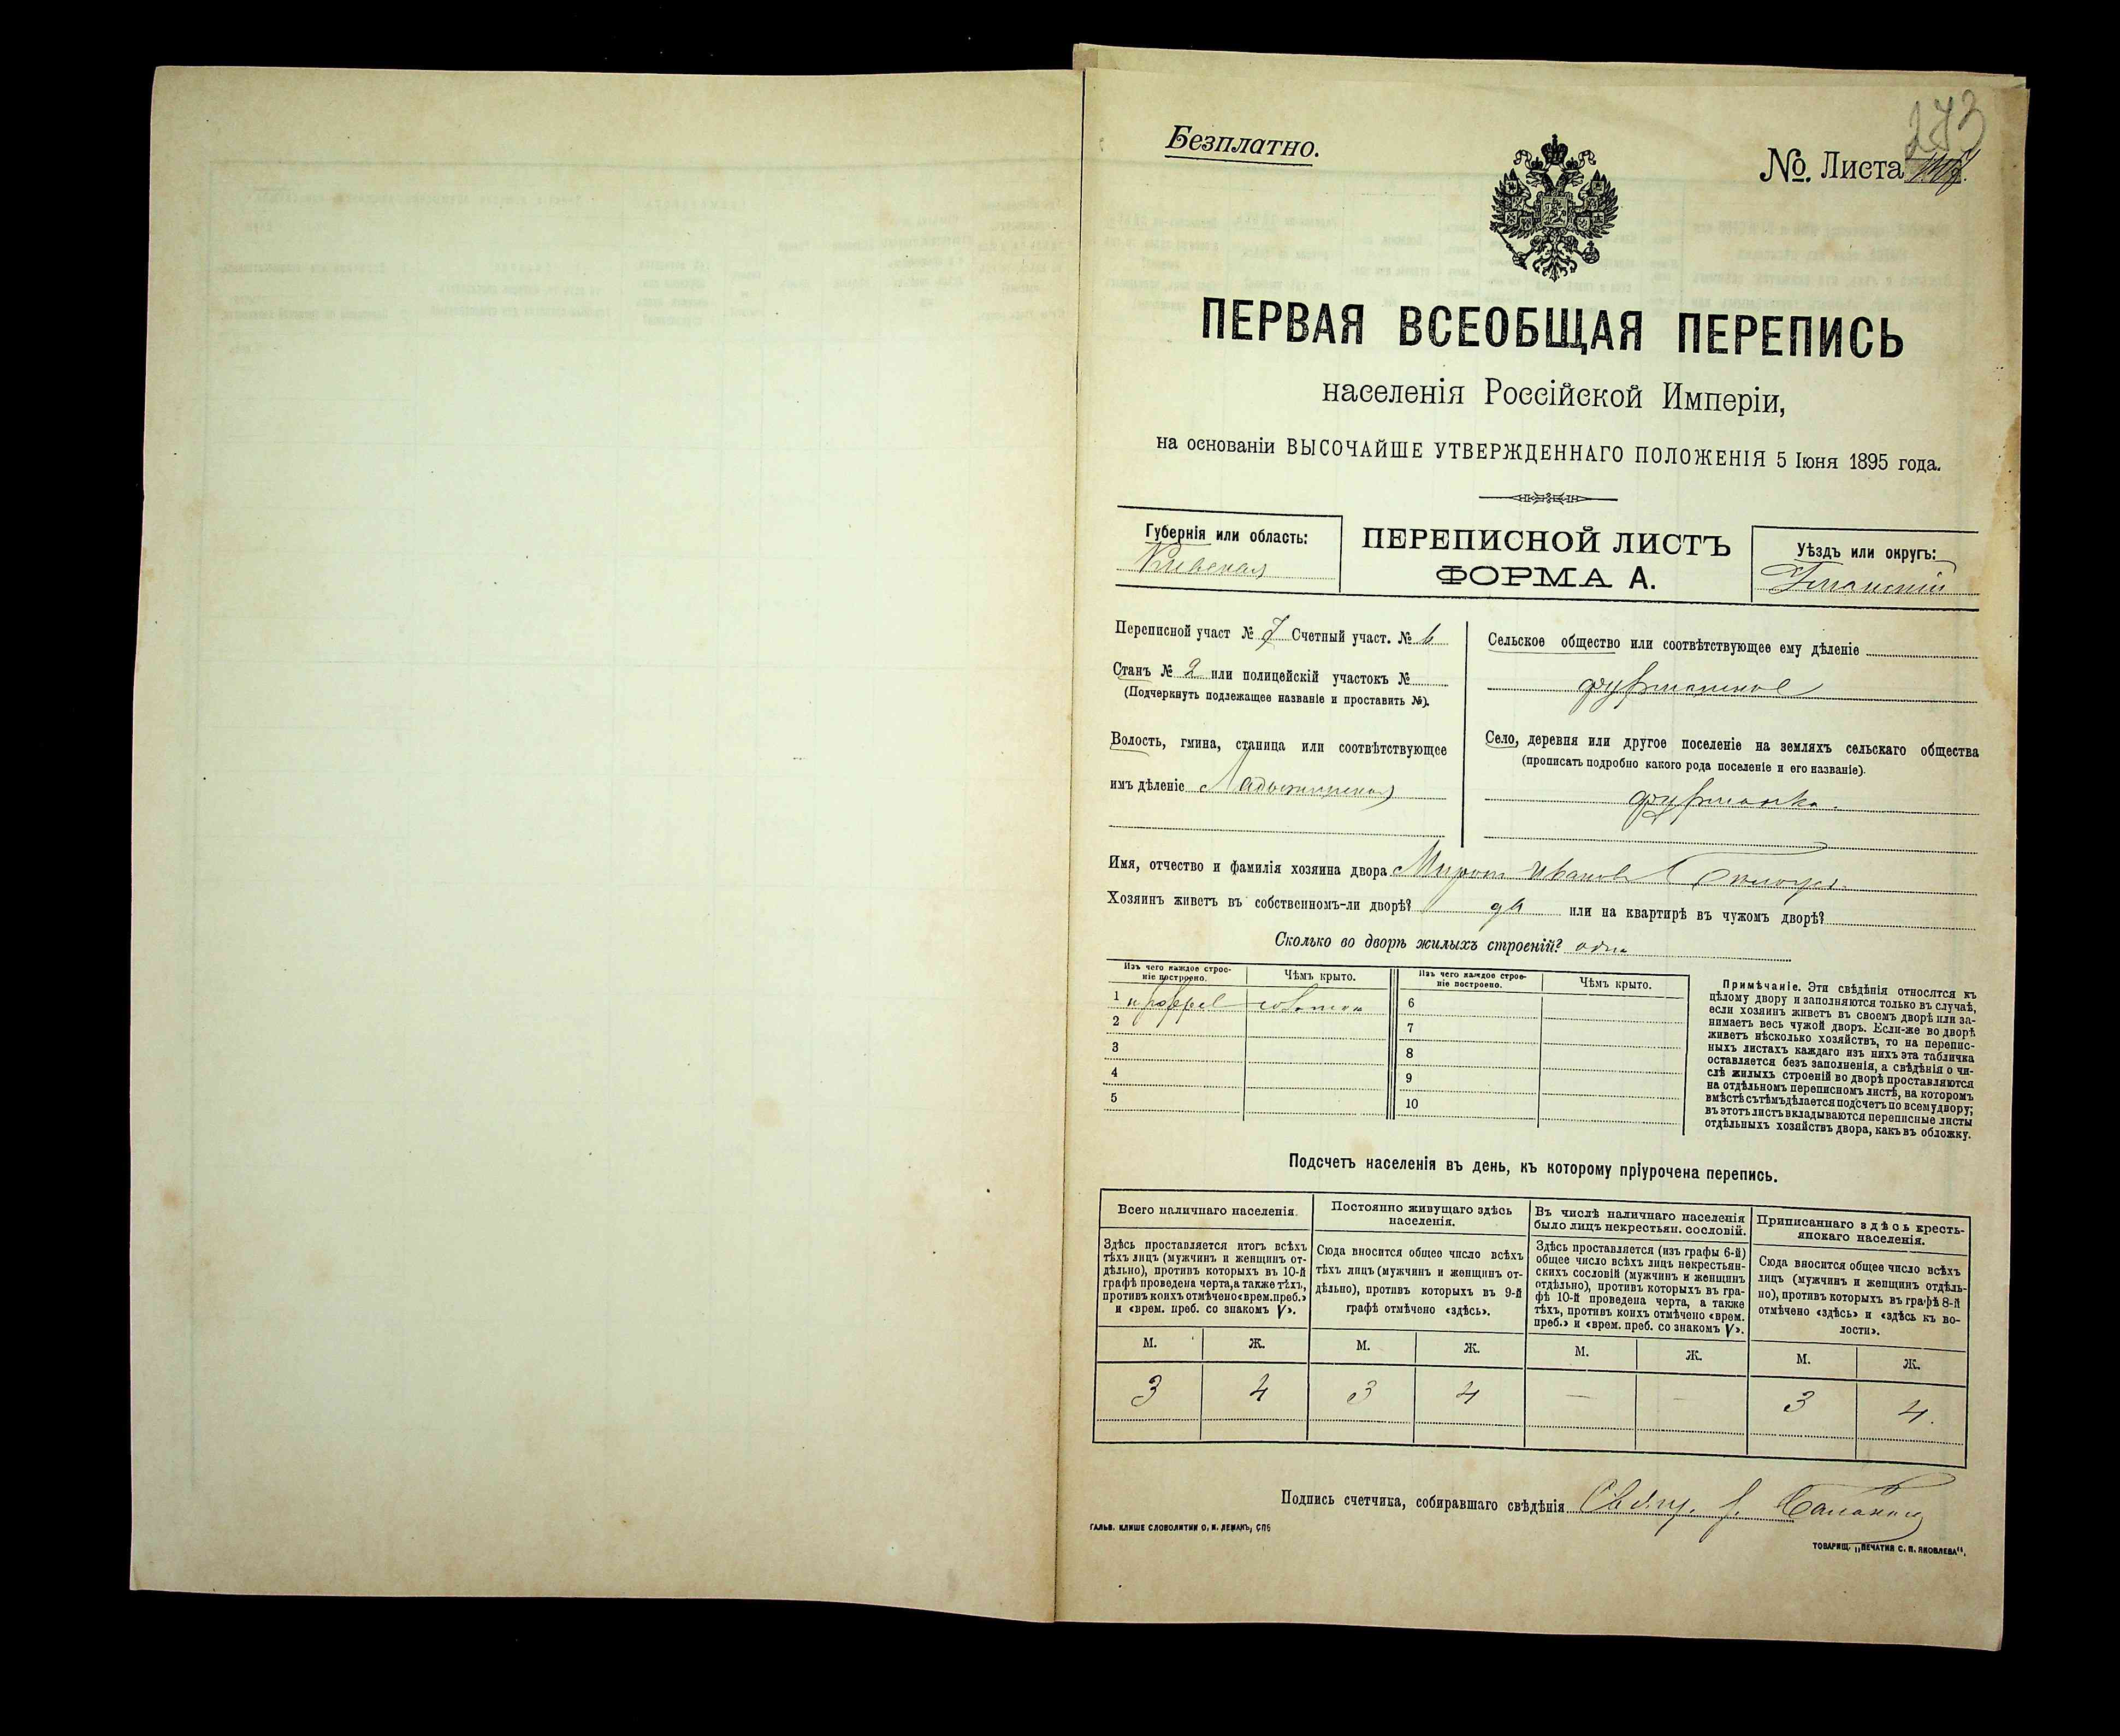 273
Безплатно.
№. Листа
ПЕРВАЯ ВСЕОБЩАЯ ПЕРЕПИСЬ
населенія Россійской Имперіи,
на основаніи ВЫСОЧАЙШЕ УТВЕРЖДЕННАГО ПОЛОЖЕНІЯ 5 Іюня 1895 года.
Губернія или область:
Кіевская
ПЕРЕПИСНОЙ ЛИСТЪ
ФОРМА А.
Уѣздъ или округъ:
Уманскій
Переписной участ № 7 Счетный участ. № 6
Станъ № 2 или полицейскій участокъ №
(Подчеркнуть подлежащее названіе и проставить №).
Волость, гмина, станица или соотвѣтствующее
имъ дѣленіе Ладыжинская
Сельское общество или соотвѣтствующее ему дѣленіе
фурманское
Село, деревня или другое поселеніе на земляхъ сельскаго общества
(прописать подробно какого рода поселеніе и его названіе).
фурманка.
Имя, отчество и фамилія хозяина двора Миронъ Ивановъ
Хозяинъ живетъ въ собственномъ-ли дворѣ? да или на квартирѣ въ чужомъ дворѣ?
Сколько во дворѣ жилыхъ строеній? одно
Изъ чего каждое строе-
ніе построено.
Чѣмъ крыто.
Изъ чего каждое строе-
ніе построено.
Чѣмъ крыто.
1 соломою 6
2 7
3 8
4 9
5 10
Примѣчаніе. Эти свѣдѣнія относятся къ
цѣлому двору и заполняются только въ случаѣ,
если хозяинъ живетъ въ своемъ дворѣ или за-
нимаетъ весь чужой дворъ. Если-же во дворѣ
живетъ нѣсколько хозяйствъ, то на перепис-
ныхъ листахъ каждаго изъ нихъ эта табличка
оставляется безъ заполненія, а свѣдѣнія о чи-
слѣ жилыхъ строеній во дворѣ проставляются
на отдѣльномъ переписномъ листѣ, на которомъ
вмѣстѣ съ тѣмъ дѣлается подсчетъ по всему двору;
въ этотъ листъ вкладываются переписные листы
отдѣльныхъ хозяйствъ двора, какъ въ обложку.
Подсчетъ населенія въ день, къ которому пріурочена перепись.
Всего наличнаго населенія.
Здѣсь проставляется итогъ всѣхъ
тѣхъ лицъ (мужчинъ и женщинъ от-
дѣльно), противъ которыхъ въ 10-й
графѣ проведена черта, а также тѣхъ,
противъ коихъ отмѣчено «врем. преб.»
и «врем. преб. со знакомъ V».
Постоянно живущаго здѣсь
населенія.
Сюда вносится общее число всѣхъ
тѣхъ лицъ (мужчинъ и женщинъ от-
дѣльно), противъ которыхъ въ 9-й
графѣ отмѣчено «здѣсь».
Въ числѣ наличнаго населенія
было лицъ некрестьян. сословій.
Здѣсь проставляется (изъ графы 6-й)
общее число всѣхъ лицъ некрестьян-
скихъ сословій (мужчинъ и женщинъ
отдѣльно), противъ которыхъ въ гра-
фѣ 10-й проведена черта, а также
тѣхъ, противъ коихъ отмѣчено «врем.
преб.» и «врем. преб. со знакомъ V».
Приписаннаго здѣсь кресть-
янскаго населенія.
Сюда вносится общее число всѣхъ
лицъ (мужчинъ и женщинъ отдѣль-
но), противъ которыхъ въ графѣ 8-й
отмѣчено «здѣсь» и «здѣсь къ во-
лости».
М. Ж. М. Ж. М. Ж. М. Ж.
3 4 3 4 — — 3 4.
Подпись счетчика, собиравшаго свѣдѣнія Свящ.
ГАЛЬВ. КЛИШЕ СЛОВОЛИТНИ О. И. ЛЕМАНЪ, СПБ
ТОВАРИЩ. „ПЕЧАТНЯ С. П. ЯКОВЛЕВА".